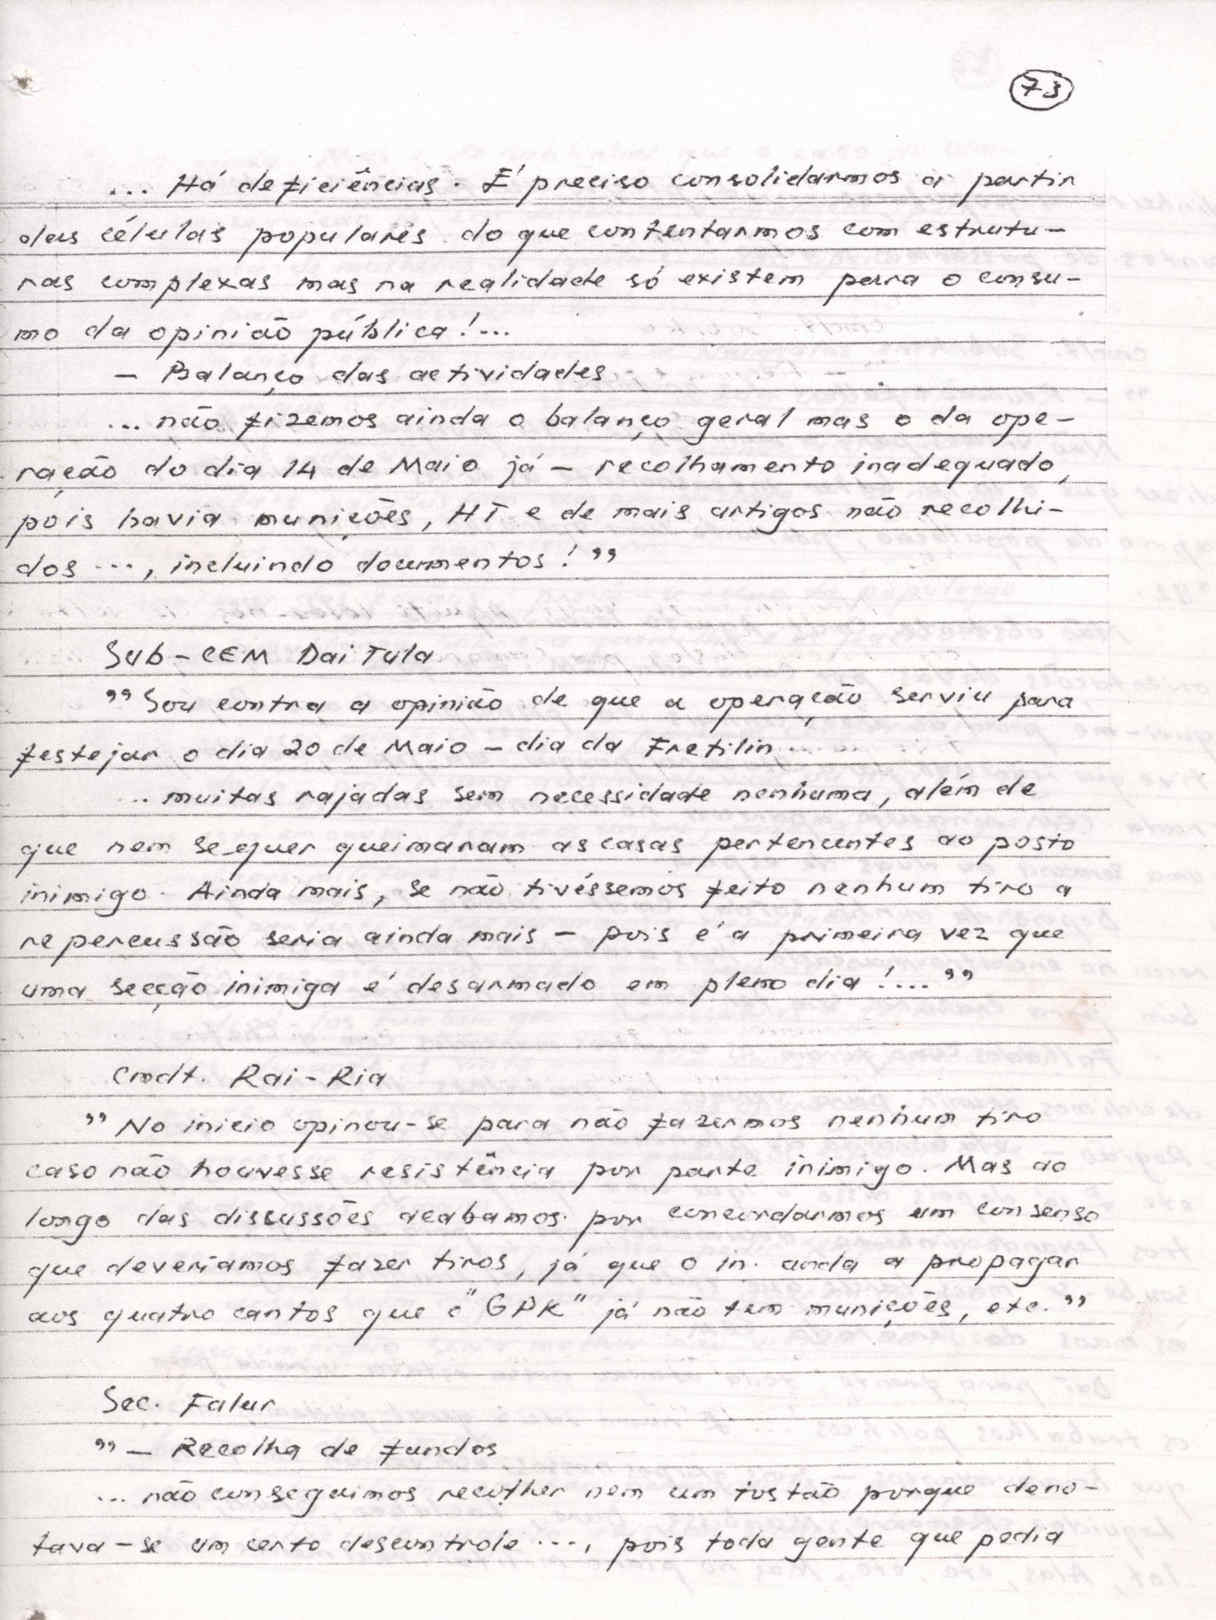 73
... Há deficiências. É preciso consolidarmos a partir
das células populares do que contentarmos com estrutu-
ras complexas mas na realidade só existem para o consu-
mo da opinião pública!...
- Balanço das actividades
... não fizemos ainda o balanço geral mas o da ope-
ração do dia 14 de Maio já - recolhamento inadequado,
pois havia munições, HT e de mais artigos não recolhi-
dos ..., incluindo documentos! ”
Sub-CEM Dai Tula
” Sou contra a opinião de que a operação serviu para
festejar o dia 20 de Maio - dia da Fretilin
... muitas rajadas sem necessidade nenhuma, além de
que nem sequer queimaram as casas pertencentes ao posto
inimigo. Ainda mais, se não tivéssemos feito nenhum tiro a
repercussão seria ainda mais - pois é a primeira vez que
uma secção inimiga é desarmado em pleno dia!... ”
Cmdt. Rai-Ria
” No inicio opinou-se para não fazermos nenhum tiro
caso não houvesse resistência por parte inimigo. Mas ao
longo das discussões acabamos por concordarmos um consenso
que deveríamos fazer tiros, já que o in. anda a propagar
aos quatro cantos que o "GPK" já não tem munições, etc. ”
Sec. Falur
” - Recolha de fundos
... não conseguimos recolher nem um tostão porque deno-
tava-se um certo descontrole ..., pois toda gente que podia